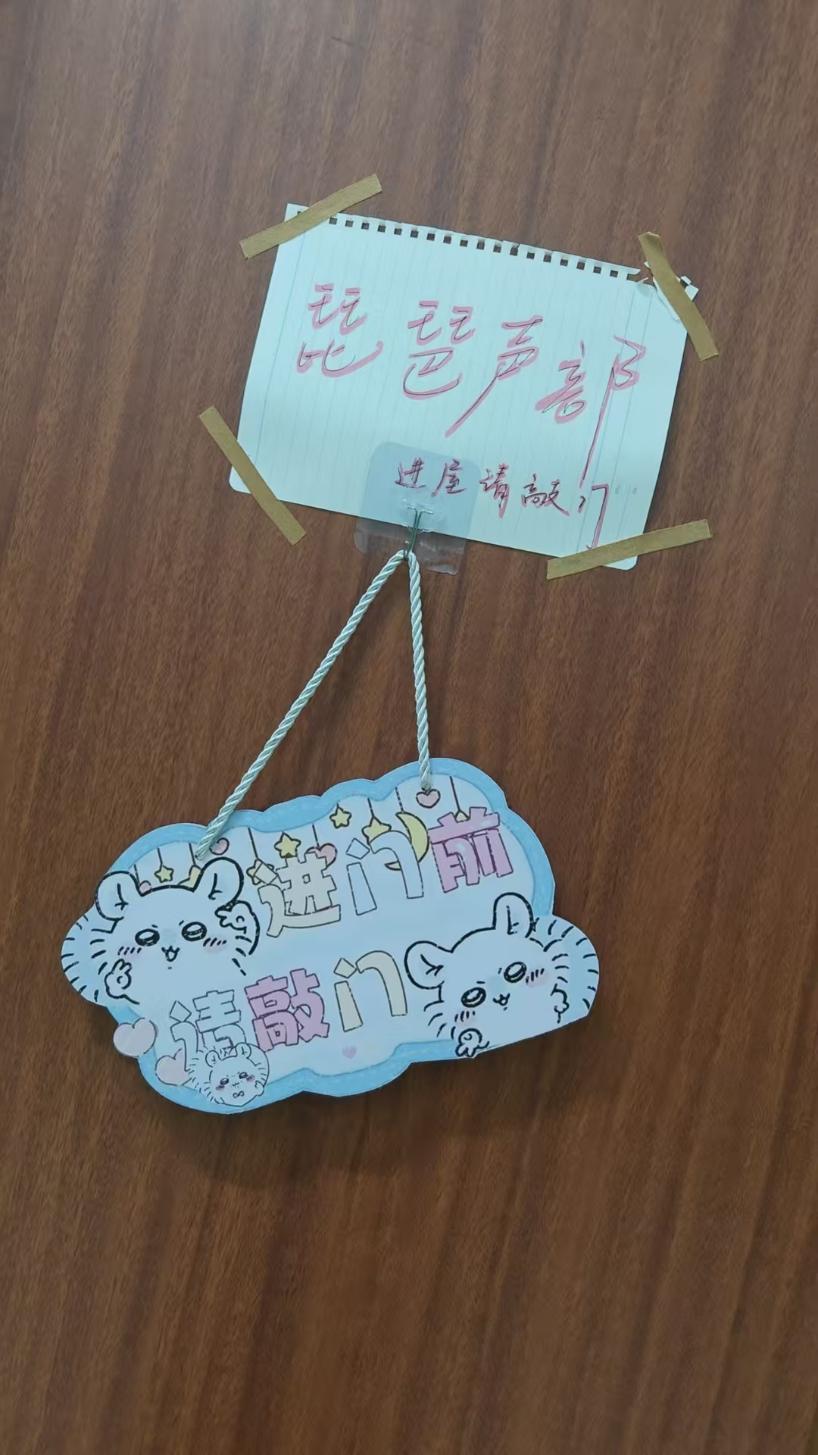 琵琶声部
进屋请敲门
进门前
请敲门